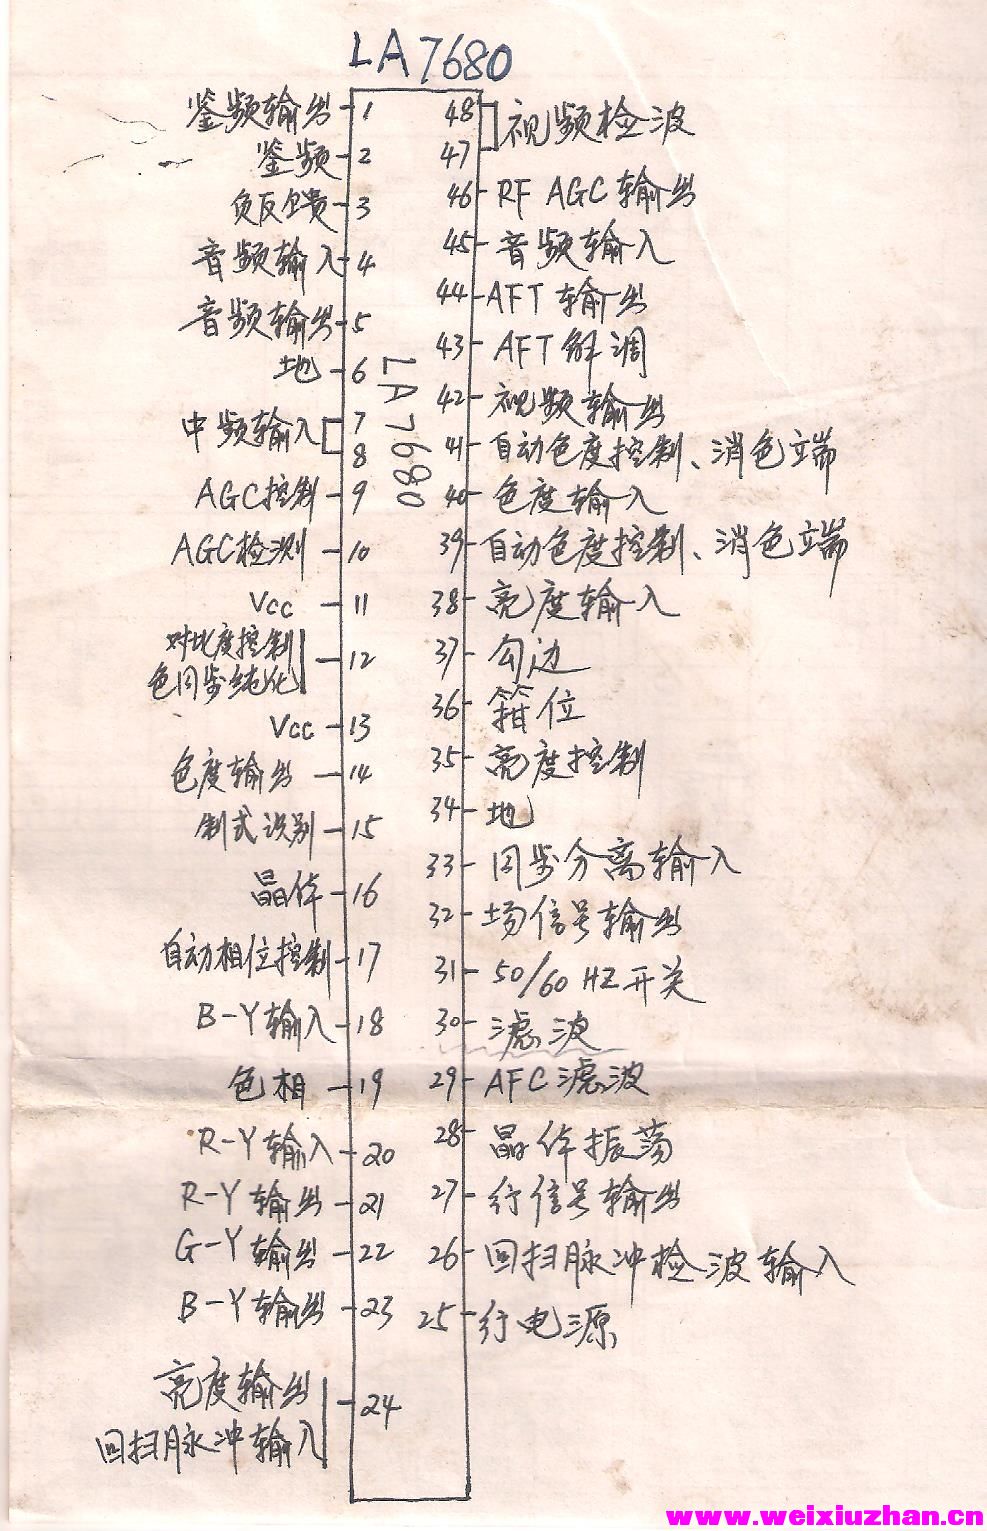 LA7680
鉴频输出 1
鉴频 2
负反馈 3
音频输入 4
音频输出 5
地 6
中频输入 7
8
AGC控制 9
AGC检测 10
Vcc 11
对比度控制
色同步纯化 12
Vcc 13
色度输出 14
制式识别 15
晶体 16
自动相位控制 17
B-Y输入 18
色相 19
R-Y输入 20
R-Y输出 21
G-Y输出 22
B-Y输出 23
亮度输出
回扫脉冲输入 24
LA7680
48 视频检波
47
46 RF AGC 输出
45 音频输入
44 AFT 输出
43 AFT 解调
42 视频输出
41 自动色度控制、消色立端
40 色度输入
39 自动色度控制、消色立端
38 亮度输入
37 勾边
36 箝位
35 亮度控制
34 地
33 同步分离输入
32 场信号输出
31 50/60 HZ开关
30 滤波
29 AFC滤波
28 晶体振荡
27 行信号输出
26 回扫脉冲检波输入
25 行电源
www.weixiuzhan.cn